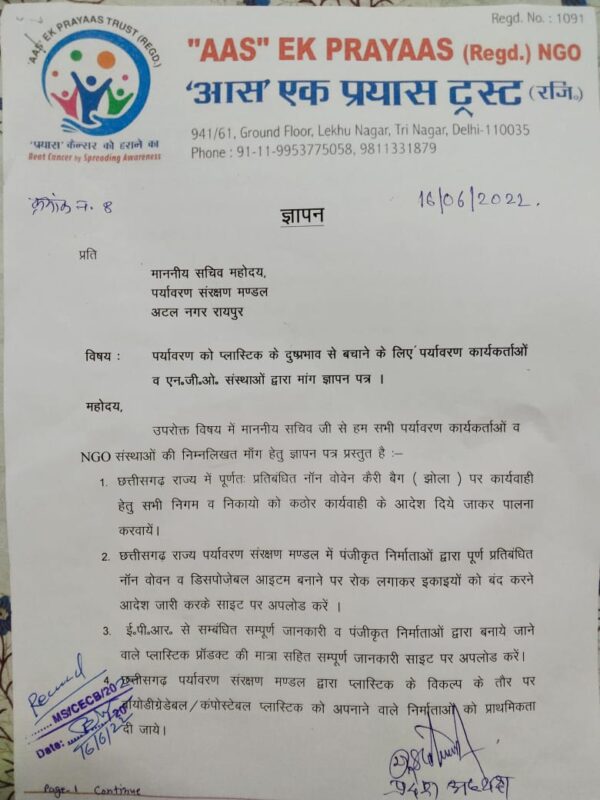 Regd. No. : 1091
"AAS" EK PRAYAAS TRUST (REGD.)
"AAS" EK PRAYAAS (Regd.) NGO
'आस' एक प्रयास ट्रस्ट (रजि०)
'प्रयास' कैन्सर को हराने का
Beat Cancer by Spreading Awareness
941/61, Ground Floor, Lekhu Nagar, Tri Nagar, Delhi-110035
Phone : 91-11-9953775058, 9811331879
क्रमांक न. 8
16/06/2022.
ज्ञापन
प्रति
माननीय सचिव महोदय,
पर्यावरण संरक्षण मण्डल
अटल नगर रायपुर
विषय : पर्यावरण को प्लास्टिक के दुष्प्रभाव से बचाने के लिए पर्यावरण कार्यकर्ताओं
व एन.जी.ओ. संस्थाओं द्वारा मांग ज्ञापन पत्र ।
महोदय,
उपरोक्त विषय में माननीय सचिव जी से हम सभी पर्यावरण कार्यकर्ताओं व
NGO संस्थाओं की निम्नलिखत माँग हेतु ज्ञापन पत्र प्रस्तुत है :–
1. छत्तीसगढ़ राज्य में पूर्णतः प्रतिबंधित नॉन वोवेन कैरी बैग ( झोला ) पर कार्यवाही
हेतु सभी निगम व निकायो को कठोर कार्यवाही के आदेश दिये जाकर पालना
करवायें।
2. छत्तीसगढ़ राज्य पर्यावरण संरक्षण मण्डल में पंजीकृत निर्माताओं द्वारा पूर्ण प्रतिबंधित
नॉन वोवन व डिसपोजेबल आइटम बनाने पर रोक लगाकर इकाइयों को बंद करने
आदेश जारी करके साइट पर अपलोड करें ।
3. ई.पी.आर. से सम्बंधित सम्पूर्ण जानकारी व पंजीकृत निर्माताओं द्वारा बनाये जाने
वाले प्लास्टिक प्रॉडक्ट की मात्रा सहित सम्पूर्ण जानकारी साइट पर अपलोड करें।
4. छत्तीसगढ़ पर्यावरण संरक्षण मण्डल द्वारा प्लास्टिक के विकल्प के तौर पर
बॉयोडीग्रेडेबल/कंपोस्टेबल प्लास्टिक को अपनाने वाले निर्माताओं को प्राथमिकता
दी जाये।
Received
MS/CECB/20
Date:
16/6/22
प्रदेश अध्यक्ष
Page 1 Continue